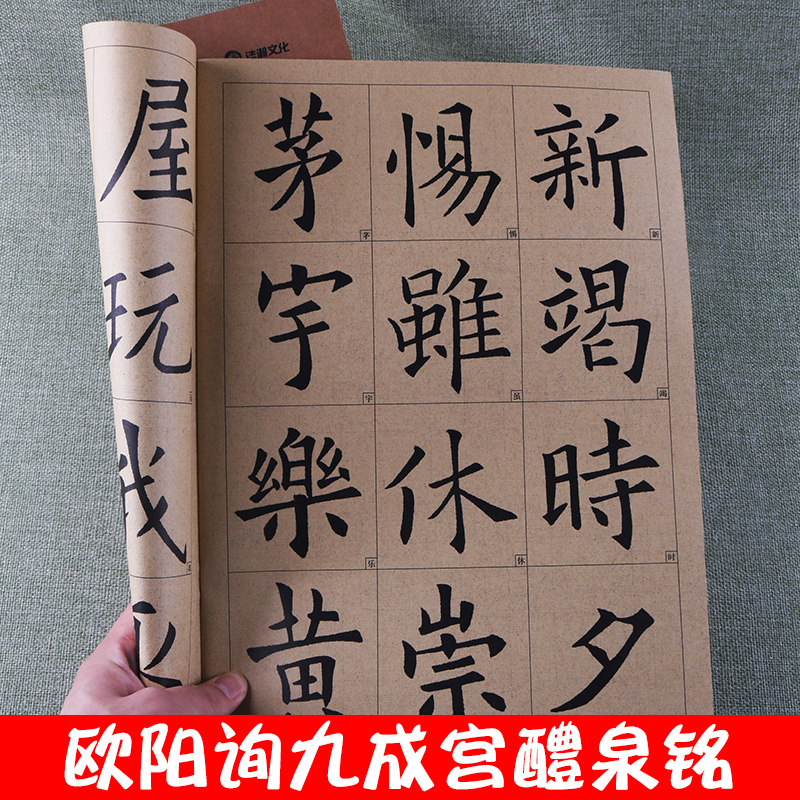 文化
新竭時夕
惕雖休崇
茅宇樂黄
屋玩我
新
竭
时
惕
虽
休
茅
宇
乐
欧阳询九成宫醴泉铭